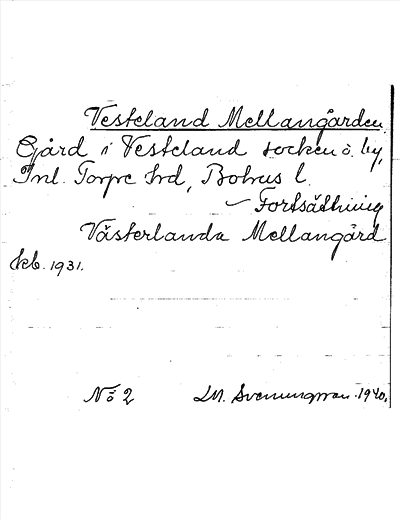 Vesteland Mellangården
Gård i Vesteland socken o. by,
Inl. Torpe hd, Bohus l.
— Fortsättning
Västerlanda Mellangård
kb. 1931.
No 2 LM. Svenungsson. 1940.